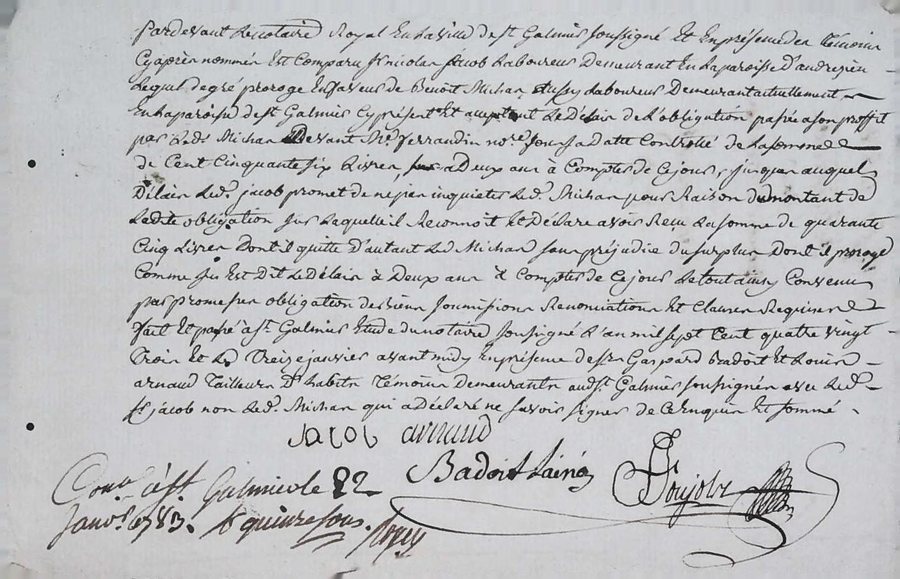 Pardevant Le notaire Royal En La ville de st. Galmier soussigné Et En présence des témoins
Cy après nommés Est Comparu sr. nicolas jacob Laboureur Demeurant En La paroisse d'andrezieu
Lequel de gré proroge En faveur de Benoit Michan aussy Laboureur Demeurant actuellement
En La paroisse de st Galmier Cy présent Et acceptant Le Délai de L'obligation passée a son proffit
par Led. Michan Devant Me. ferraudin nore. sous sa datte Controllé de La somme de
de Cent Cinquante six Livres, a Deux ans à Compter de Ce jour, jusques auquel
Délai Led. jacob promet de ne pas inquieter Led. Michan pour Raison du montant de
Ladite obligation sur Laquelle il Reconnoit Et Déclare avoir Reçu La somme de quarante
Cinq Livres Dont il quitte D'autant Led. Michan sans préjudice du surplus Dont il proroge
Comme sus Est Dit Le Délai à Deux ans à Compter de Ce jour Le tout ainsy Convenu
par promesses obligation de biens soumissions Renonciations Et Clauses Requises
fait Et passé a st. Galmier Etude du notaire soussigné L'an mil sept Cent quatre vingt
Trois Et Le Treize janvier avant midy En présence de srs Gaspard Badoit Et Louis
arnaud Tailleurs D'habits Témoins Demeurants aud. st. Galmier soussignés avec Led.
sr jacob non Led. Michan qui a Déclaré ne savoir signer de Ce Enquis Et sommé
Jacob arnaud
Badoit Lainé
Poujolz
Conlé à st Galmier le 22
Janvr. 1783. R quinze sous.